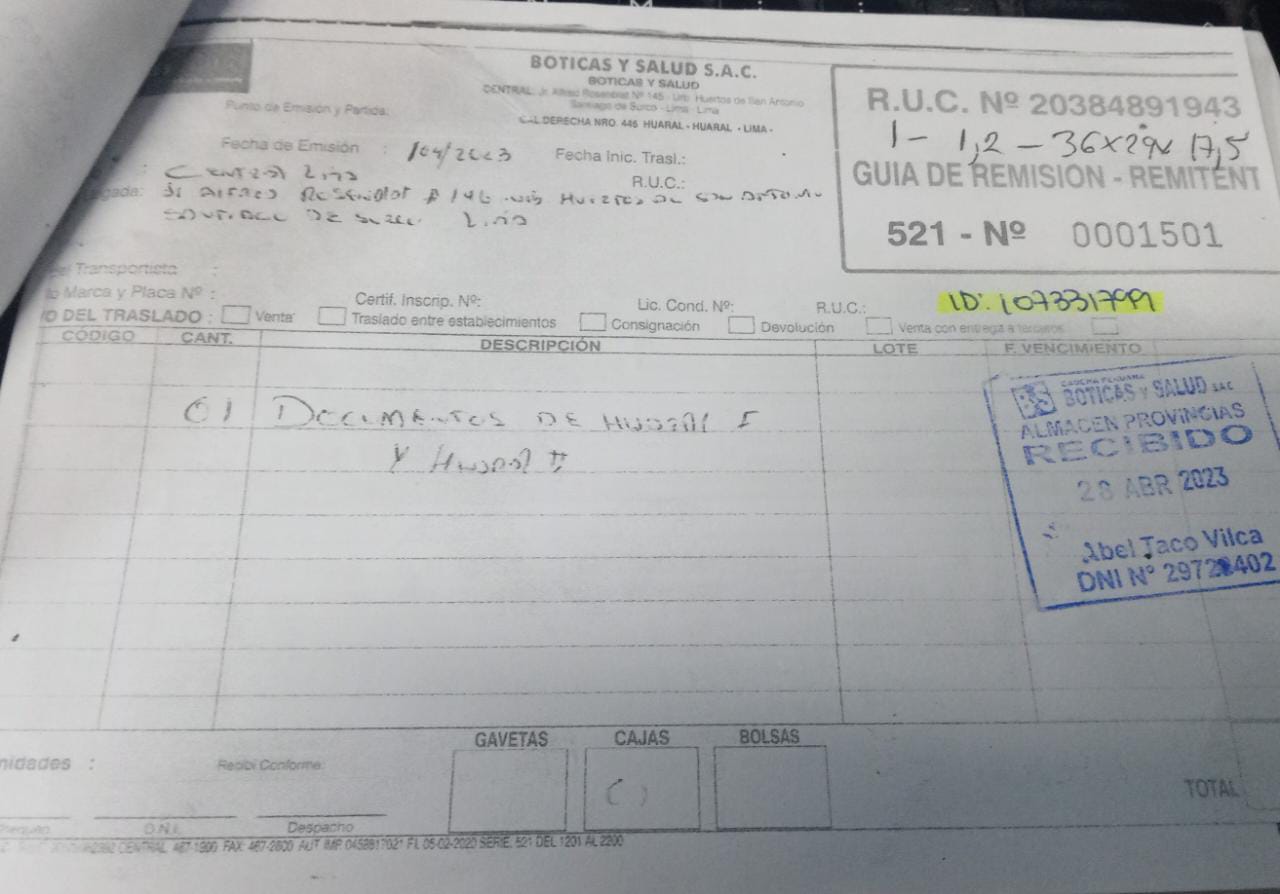 BOTICAS Y SALUD S.A.C.
BOTICAS Y SALUD
CENTRAL: Jr. Alfredo Rosenblat Nº 145 - Urb. Huertos de San Antonio
Santiago de Surco - Lima - Lima
CAL.DERECHA NRO. 446 HUARAL - HUARAL - LIMA -
Punto de Emisión y Partida:
Fecha de Emisión : /04/2023 Fecha Inic. Trasl.:
R.U.C.:
R.U.C. Nº 20384891943
1 - 1,2 - 36x29x 17,5
GUIA DE REMISION - REMITENT
521 - Nº 0001501
Transportista :
Marca y Placa Nº : Certif. Inscrip. Nº: Lic. Cond. Nº: R.U.C.: ID: 1073317991
O DEL TRASLADO : Venta Traslado entre establecimientos Consignación Devolución Venta con entrega a terceros
CÓDIGO CANT. DESCRIPCIÓN LOTE F. VENCIMIENTO
01 DOCUMENTOS DE HUARAL I
Y HUARAL II
BS BOTICAS Y SALUD SAC
ALMACEN PROVINCIAS
RECIBIDO
28 ABR 2023
Abel Taco Vilca
DNI Nº 402
GAVETAS CAJAS BOLSAS
nidades : Recibi Conforme:
TOTAL
D.N.I. Despacho
CENTRAL 467-1900 FAX: 467-2600 AUT IMP. 0459817021 F.I. 05-02-2020 SERIE: 521 DEL 1201 AL 2200